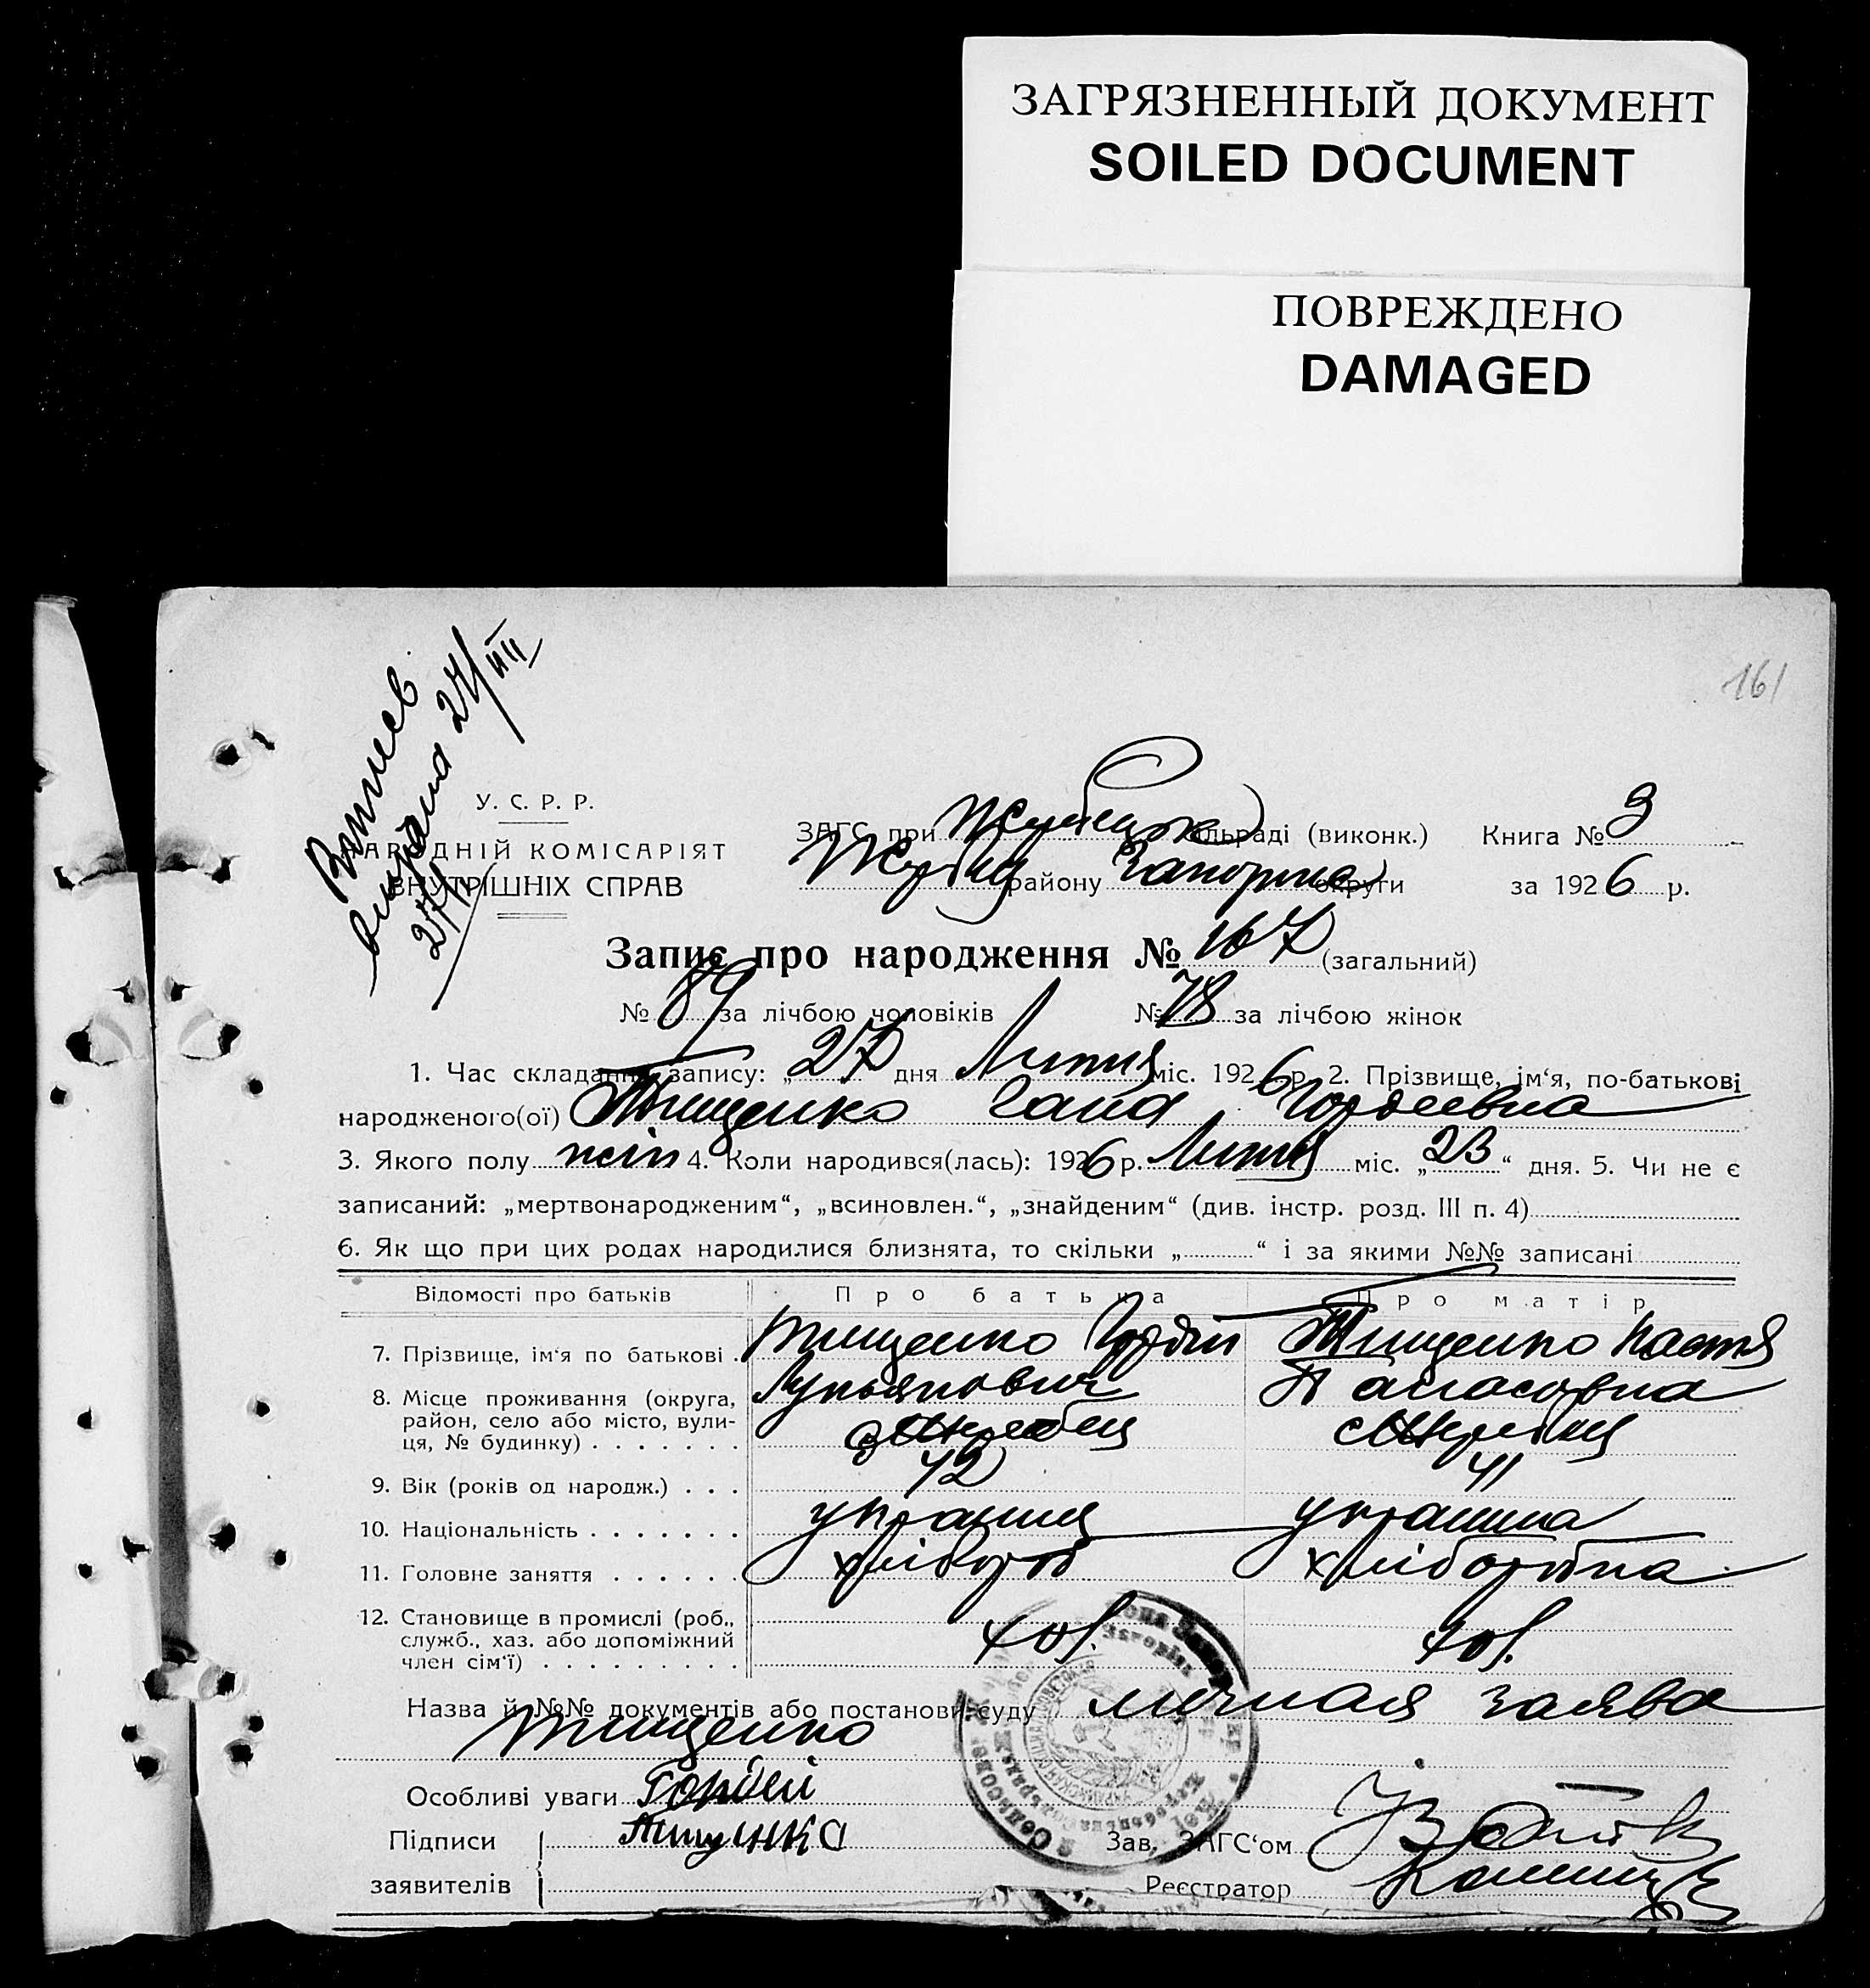 ЗАГРЯЗНЕННЫЙ ДОКУМЕНТ
SOILED DOCUMENT
ПОВРЕЖДЕНО
DAMAGED
161
27/III
У. С. Р. Р.
НАРОДНІЙ КОМІСАРІЯТ
ВНУТРІШНІХ СПРАВ
ЗАГС при сільраді (виконк.) Книга № 3
району округи за 1926 р.
Запис про народження № 167 (загальний)
№ 89 за лічбою чоловіків № 78 за лічбою жінок
1. Час складання запису: „27 дня Лютня міс. 1926 р. 2. Прізвище, ім'я, по-батькові
народженого(ої) Тищенко Гана Гордеевна
3. Якого полу жін 4. Коли народився(лась): 1926 р. Лютня міс. „23“ дня. 5. Чи не є
записаний: „мертвонародженим“, „всиновлен.“, „знайденим“ (див. інстр. розд. III п. 4)
6. Як що при цих родах народилися близнята, то скільки „ “ і за якими №№ записані
Відомості про батьків Про батька Про матір
7. Прізвище, ім'я по батькові Тищенко Гордій Тищенко Настя
Лукьянович Панасовна
8. Місце проживання (округа,
район, село або місто, вули-
ця, № будинку) с Жеребец с Жеребец
9. Вік (років од народж.) 42 41
10. Національність украинц украинка
11. Головне заняття хлібороб хліборобка
12. Становище в промислі (роб.,
служб., хаз. або допоміжний
член сім'ї)
Назва й №№ документів або постанови суду личная заява
Тищенко
Особливі уваги Гордей
Підписи
заявителів
Зав. ЗАГС'ом
Реєстратор